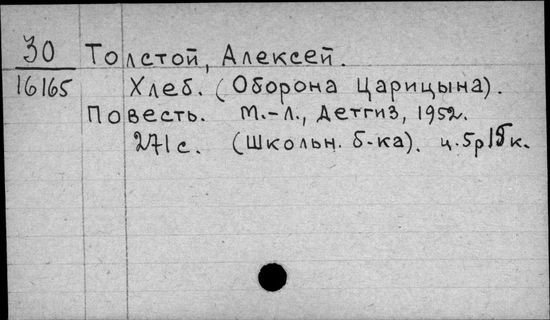 30 Толстой, Алексей.
16165 Хлеб. (Оборона Царицына).
Повесть. М.-Л., Детгиз, 1952.
271 с. (Школьн. б-ка). ц. 5р 15 к.